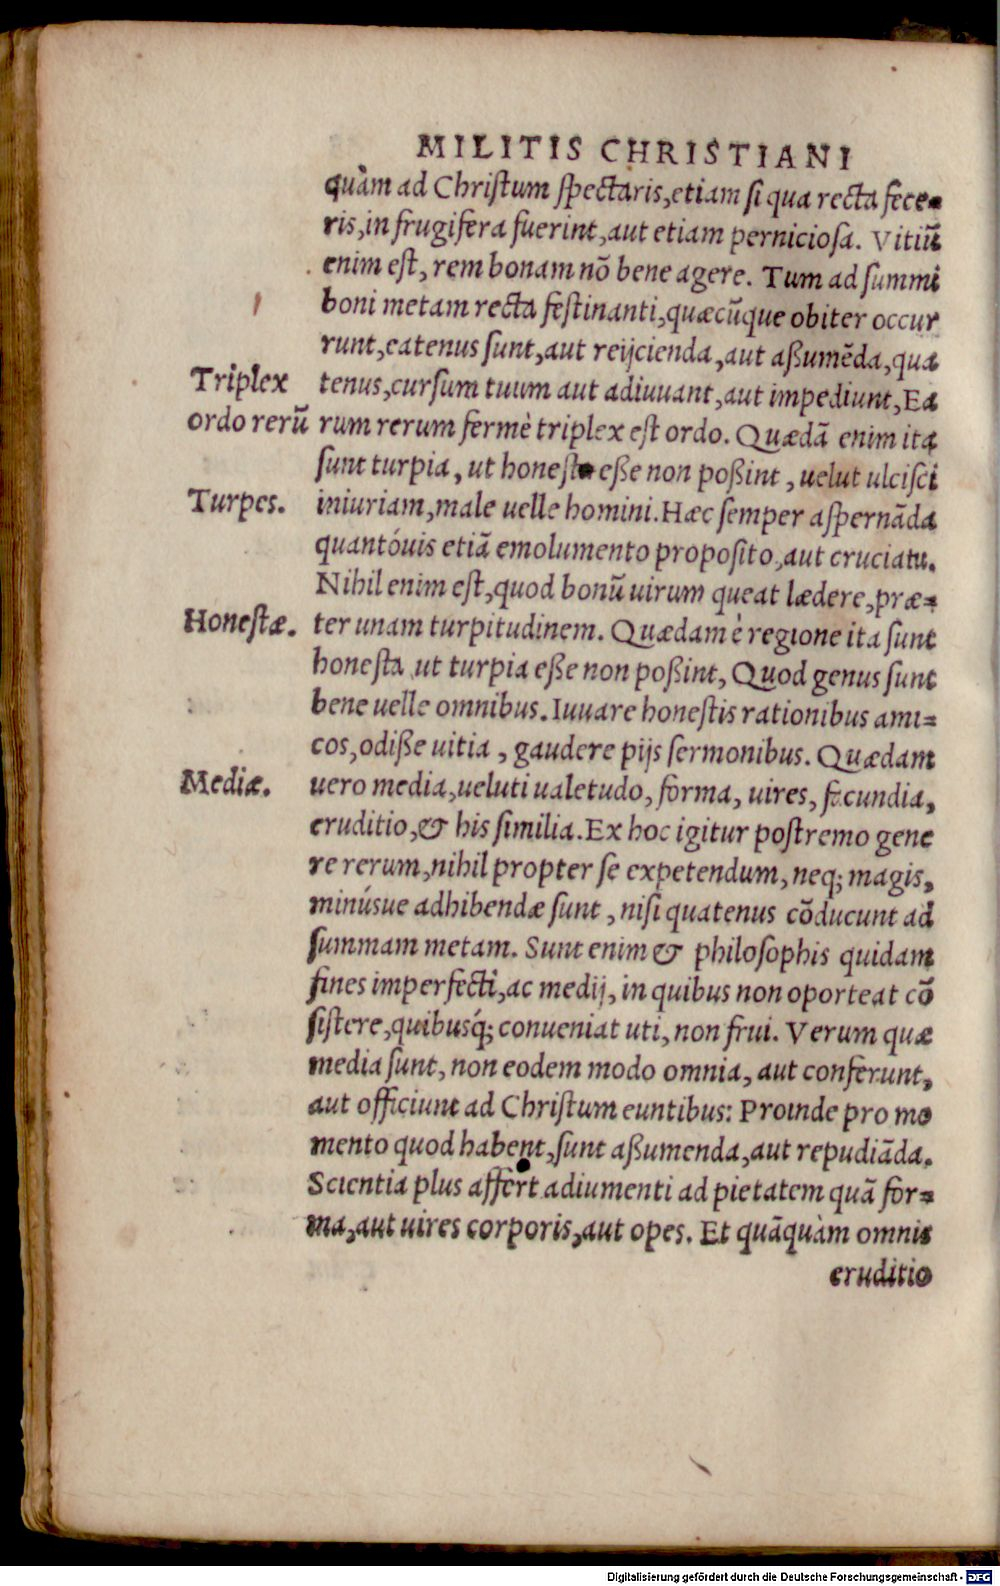 MILITIS CHRISTIANI
quàm ad Chriſtum ſpectaris, etiam ſi qua recta fece-
ris, in frugifera fuerint, aut etiam pernicioſa. Vitiũ
enim eſt, rem bonam nõ bene agere. Tum ad ſummi
boni metam recta feſtinanti, quæcũque obiter occur
runt, eatenus ſunt, aut reijcienda, aut aßumẽda, qua
Triplex
tenus, curſum tuum aut adiuuant, aut impediunt, Ea
ordo rerũ
rum rerum fermè triplex eſt ordo. Quædã enim ita
ſunt turpia, ut honeſta eße non poßint, uelut ulciſci
Turpes.
iniuriam, male uelle homini. Hæc ſemper aſpernãda
quantóuis etiã emolumento propoſito, aut cruciatu.
Nihil enim eſt, quod bonũ uirum queat lædere, præ=
Honeſtæ.
ter unam turpitudinem. Quædam è regione ita ſunt
honeſta ut turpia eße non poßint, Quod genus ſunt
bene uelle omnibus. Iuuare honeſtis rationibus ami=
cos, odiße uitia, gaudere pijs ſermonibus. Quædam
Mediæ.
uero media, ueluti ualetudo, forma, uires, facundia,
eruditio, & his ſimilia. Ex hoc igitur poſtremo gene
re rerum, nihil propter ſe expetendum, neq; magis,
minúsue adhibendæ ſunt, niſi quatenus cõducunt ad
ſummam metam. Sunt enim & philoſophis quidam
fines imperfecti, ac medij, in quibus non oporteat cõ
ſiſtere, quibusq́; conueniat uti, non frui. Verum quæ
media ſunt, non eodem modo omnia, aut conferunt,
aut officiunt ad Chriſtum euntibus: Proinde pro mo
mento quod habent, ſunt aßumenda, aut repudiãda.
Scientia plus affert adiumenti ad pietatem quã for=
ma, aut uires corporis, aut opes. Et quãquàm omnis
eruditio
Digitalisierung gefördert durch die Deutsche Forschungsgemeinschaft - DFG